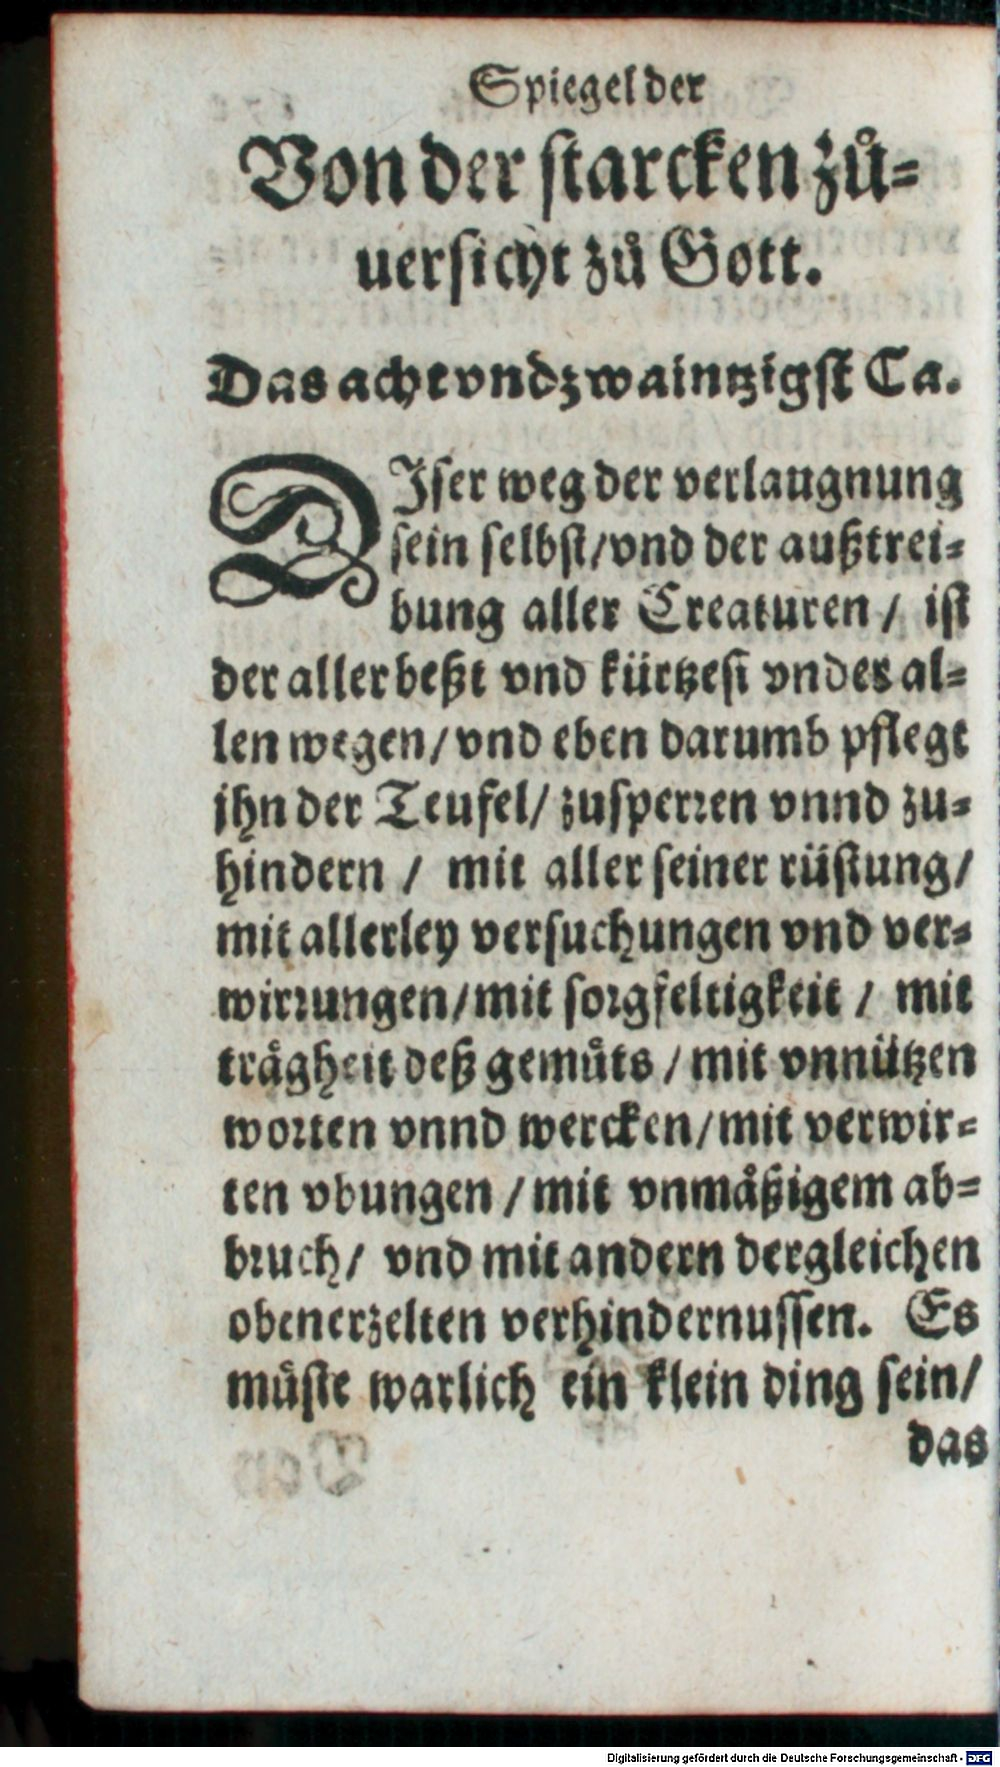 Spiegel der
Von der starcken zů-
uersicht zů Gott.
Das acht vnd zwaintzigst Ca.
DIser weg der verlaugnung
sein selbst/vnd der außtrei-
bung aller Creaturen / ist
der aller beßt vnd kürtzest vnder al-
len wegen/vnd eben darumb pflegt
jhn der Teufel/ zusperren vnnd zu-
hindern / mit aller seiner rüstung/
mit allerley versuchungen vnd ver-
wirrungen/mit sorgfeltigkeit / mit
trågheit deß gemůts / mit vnnützen
worten vnnd wercken/mit verwir-
ten vbungen / mit vnmåßigem ab-
bruch/ vnd mit andern dergleichen
obenerzelten verhindernussen. Es
můste warlich ein klein ding sein/
das
Digitalisierung gefördert durch die Deutsche Forschungsgemeinschaft - DFG